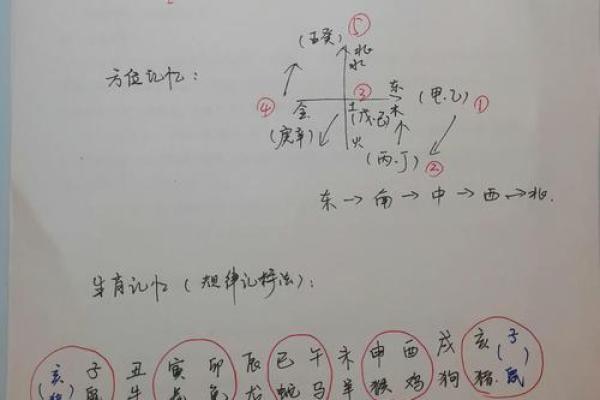 ⑤
(壬癸)
北
水
方位记忆：
东
③
④ 金 土 木 (甲.乙) ①
(戊.己)
(庚辛)
火
(丙.丁) ②
东→南→中→西→北.
生肖记忆(规律记法)：
亥 子 丑 寅 卯 辰 巳 午 未 申 酉 戌 亥 子
鼠 牛 虎 兔 龙 蛇 马 羊 猴 鸡 狗 猪 鼠